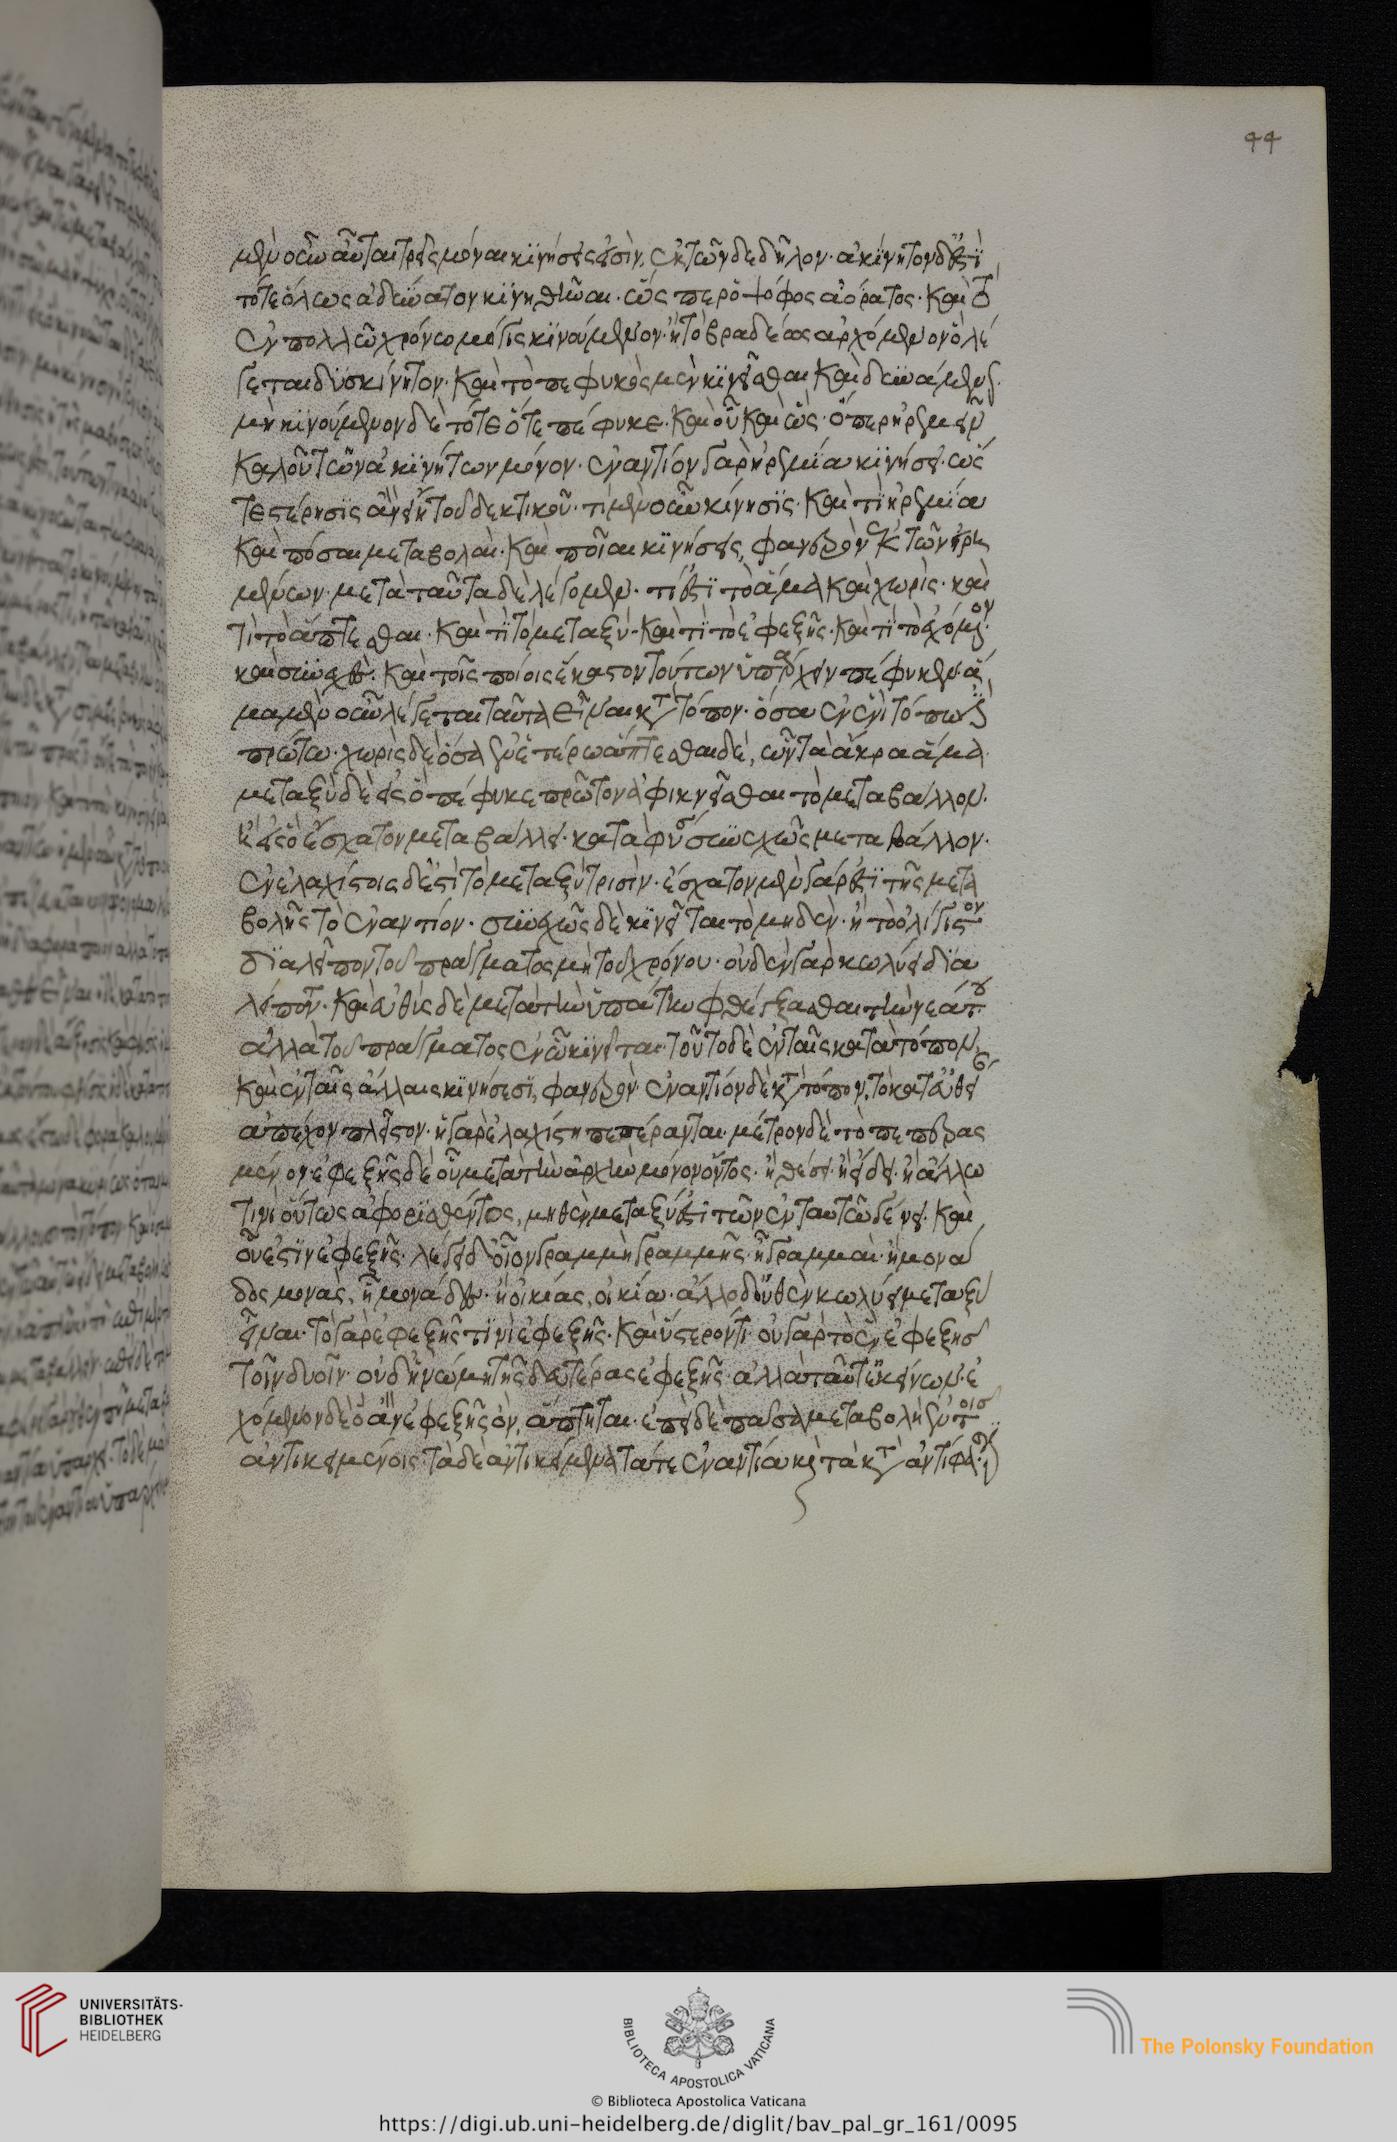 μὲν οὖν αὗται τρεῖς μόναι κινήσεις εἰσὶν, ἐκ τῶνδε δῆλον· ἀκίνητον δ' ἐστὶ
τό τε ὅλως ἀδύνατον κινηθῆναι· ὥσπερ ὁ ψόφος ἀόρατος· καὶ τὸ
ἐν πολλῶ χρόνω μόλις κινούμενον· ἢ τὸ βραδέως ἀρχόμενον ὃ λέ
γεται δυσκίνητον· καὶ τὸ πεφυκὸς μὲν κινεῖσθαι καὶ δυνάμενον·
μὴ κινούμενον δὲ τότε ὅτε πέφυκε· καὶ οὗ καὶ ὥς· ὅπερ ἠρεμεῖν
καλοῦ τῶν ἀκινήτων μόνον· ἐναντίον γὰρ ἠρεμία κινήσει· ὥς
τε στέρησις ἂν εἴη τοῦ δεκτικοῦ· τί μὲν οὖν κίνησις· καὶ τί ἠρεμία
καὶ πόσαι μεταβολαὶ· καὶ ποῖαι κινήσεις, φανερὸν ἐκ τῶν εἰρη
μένων· μετὰ ταῦτα δὲ λέγομεν· τί ἐστὶ τὸ ἅμα καὶ χωρίς· καὶ
τί τὸ ἅπτεσθαι· καὶ τί τὸ μεταξύ· καὶ τί τὸ ἐφεξῆς· καὶ τί τὸ ἐχόμενον·
καὶ συνεχὲς· καὶ τοῖς ποίοις ἕκαστον τούτων ὑπάρχειν πέφυκεν· ἅ
μα μὲν οὖν λέγεται ταῦτα εἶναι κατὰ τόπον· ὅσα ἐν ἑνὶ τόπω ἐστὶ
πρώτω· χωρὶς δὲ ὅσα ἐν ἑτέρω· ἅπτεσθαι δέ, ὧν τὰ ἄκρα ἅμα·
μεταξὺ δὲ εἰς ὃ πέφυκε πρῶτον ἀφικνεῖσθαι τὸ μεταβάλλον·
ἢ εἰς ὃ ἔσχατον μεταβάλλει· κατὰ φύσιν συνεχῶς μεταβάλλον·
ἐν ἐλαχίστοις δ' ἐστὶ τὸ μεταξὺ τρισίν· ἔσχατον μὲν γάρ ἐστι τῆς μετα
βολῆς τὸ ἐναντίον· συνεχῶς δὲ κινεῖται τὸ μηδὲν· ἢ τὸ ὀλίγιστον
διαλεῖπον τοῦ πράγματος μὴ τοῦ χρόνου· οὐδὲν γὰρ κωλύει δια
λεῖπον· καὶ εὐθὺς δὲ μετὰ τὴν ὑπάτην φθέγξασθαι τὴν νεάτην
ἀλλὰ τοῦ πράγματος ἐν ὧ κινεῖται· τοῦτο δὲ ἐν ταῖς κατὰ τόπον
καὶ ἐν ταῖς ἄλλαις κινήσεσι, φανερὸν· ἐναντίον δὲ κατὰ τόπον, τὸ κατ' εὐθεῖαν
ἀπέχον πλεῖστον· ἡ γὰρ ἐλαχίστη πεπέρανται· μέτρον δὲ τὸ πεπερας
μένον· ἐφεξῆς δὲ οὗ μετὰ τὴν ἀρχὴν μόνον ὄντος· ἢ θέσει· ἢ εἴδει· ἢ ἄλλω
τινὶ οὕτως ἀφορισθέντος, μηθὲν μεταξύ ἐστι τῶν ἐν ταυτῶ γένει· καὶ
οὗ ἐστιν ἐφεξῆς· λέγω δ' οἷον γραμμὴ γραμμῆς· ἢ γραμμαὶ· ἢ μονά
δος μονὰς, ἢ μονάδες· ἢ οἰκίας, οἰκία· ἄλλο δ' οὐθὲν κωλύει μεταξὺ
εἶναι· τὸ γὰρ ἐφεξῆς τινὶ ἐφεξῆς· καὶ ὕστερόν τι· οὐ γὰρ τὸ ἓν ἐφεξῆς
τοῖν δυοῖν· οὐδ' ἡ νουμηνία τῆς δευτέρας ἐφεξῆς· ἀλλὰ ταῦτ' ἐκείνων· ἐ
χόμενον δὲ ὃ ἂν ἐφεξῆς ὂν, ἅπτηται· ἐπεὶ δὲ πᾶσα μεταβολὴ ἐν τοῖς
ἀντικειμένοις· τὰ δὲ ἀντικείμενα τά τε ἐναντία καὶ τὰ κατ' ἀντίφασιν
44
UNIVERSITÄTS-
BIBLIOTHEK
HEIDELBERG
BIBLIOTECA APOSTOLICA VATICANA
The Polonsky Foundation
© Biblioteca Apostolica Vaticana
https://digi.ub.uni-heidelberg.de/diglit/bav_pal_gr_161/0095